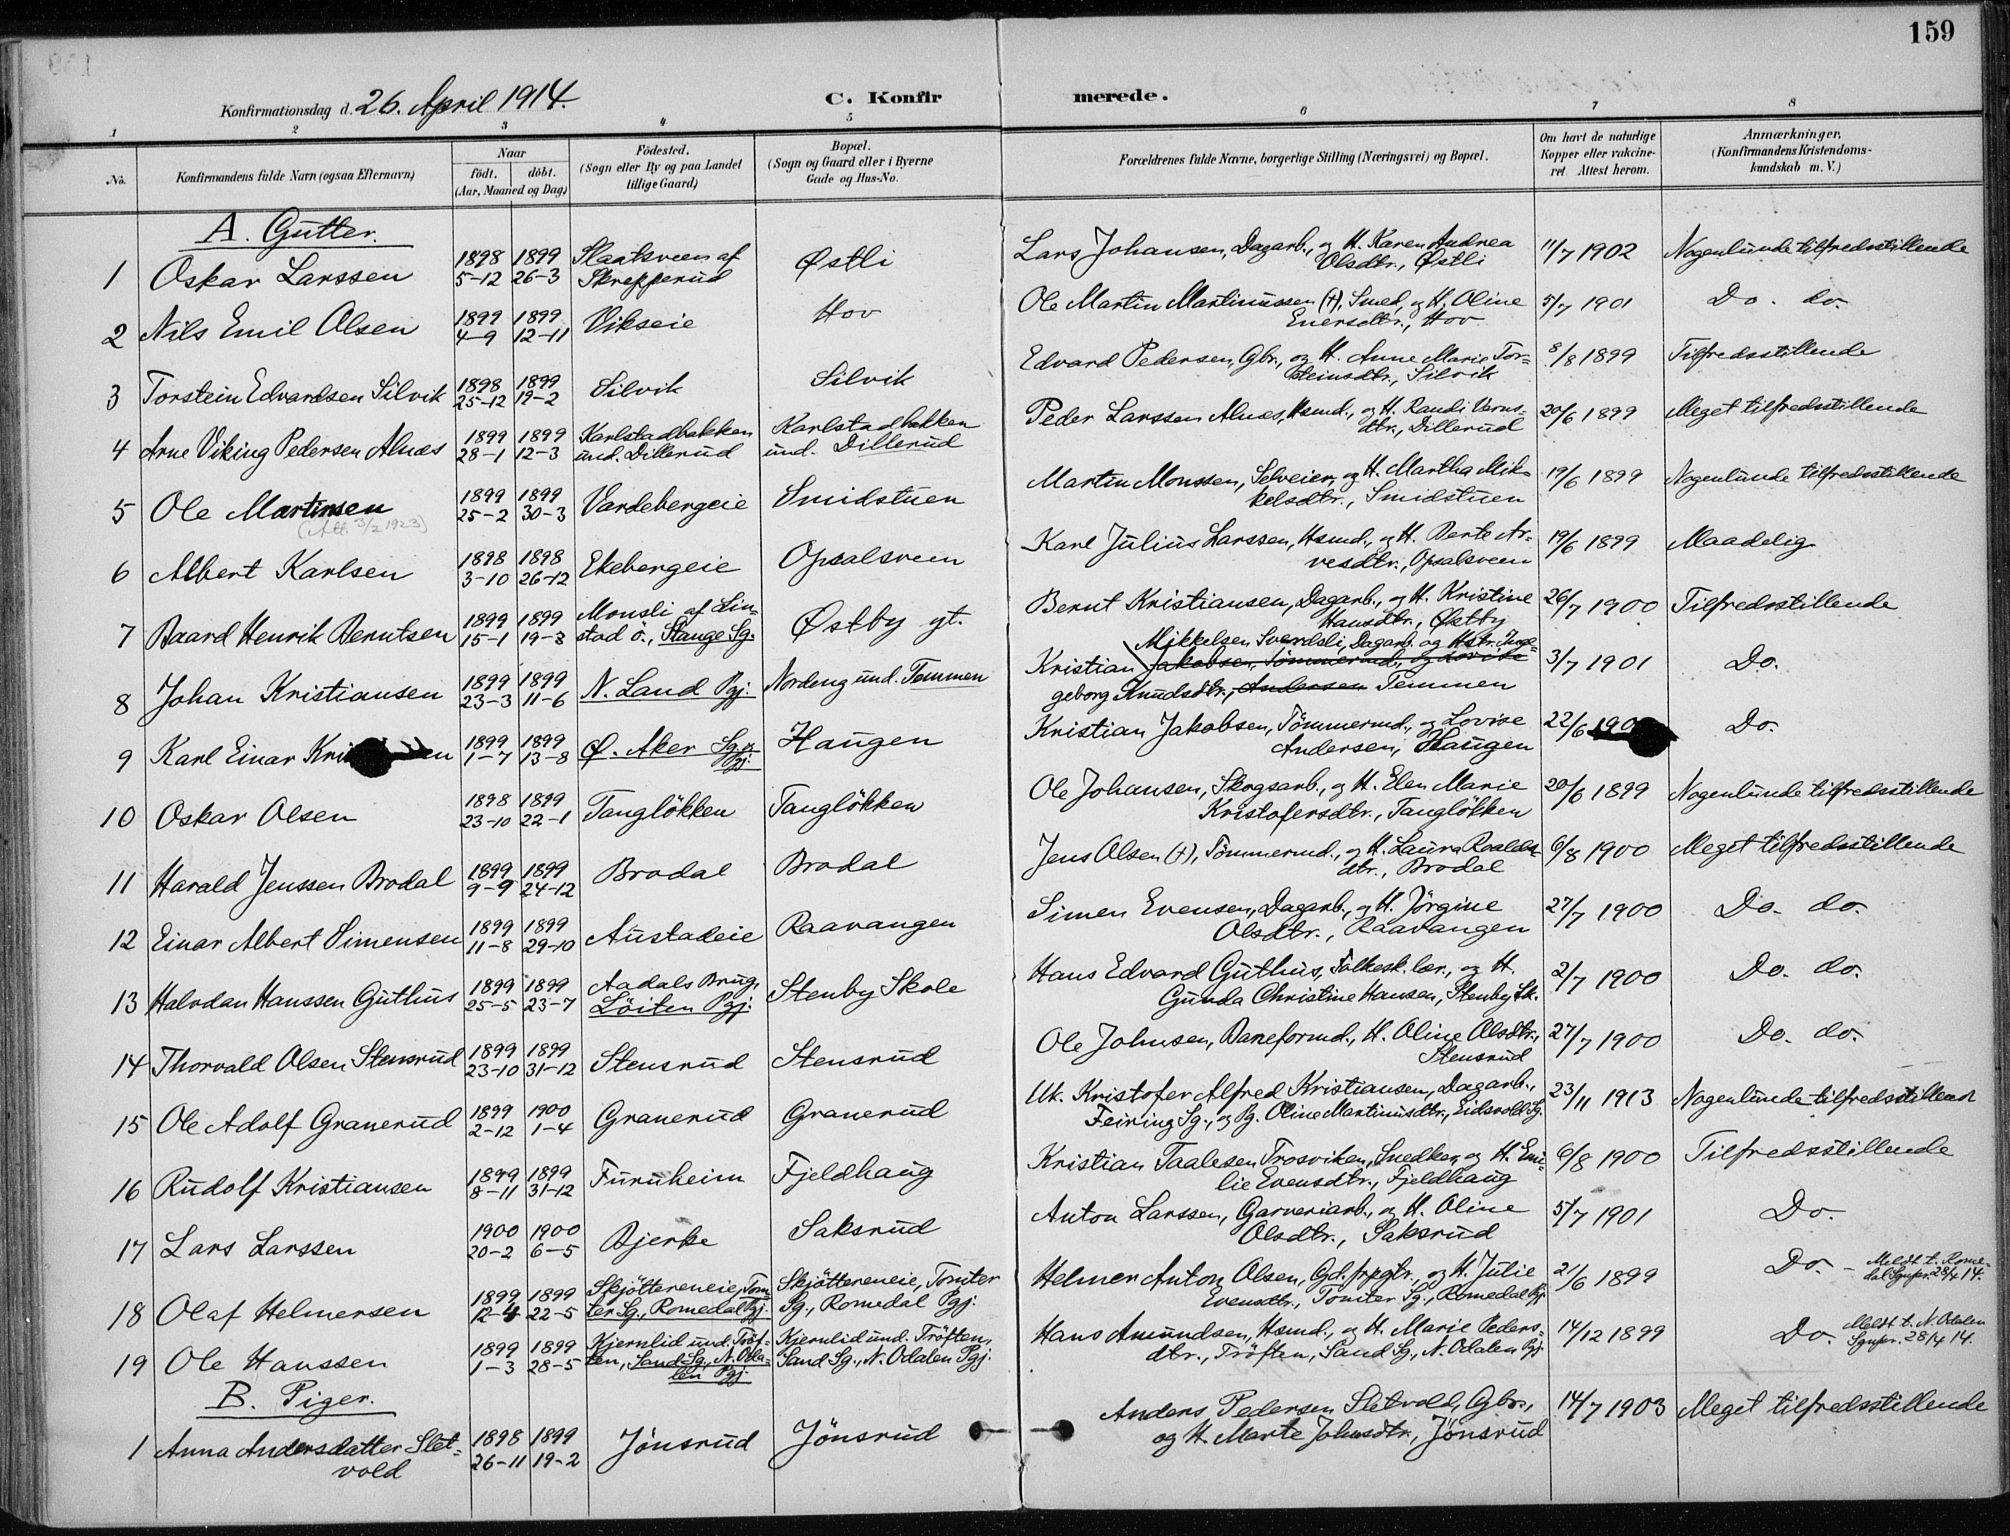 159
Konfirmationsdag d. 26. April 1914.
C. Konfirmerede.
1 2 3 4 5 6 7 8
No.
Konfirmandens fulde Navn (ogsaa Efternavn)
Naar
födt. döbt.
(Aar, Maaned og Dag)
Födested.
(Sogn eller By og paa Landet
tillige Gaard)
Bopæl.
(Sogn og Gaard eller i Byerne
Gade og Hus-No.
Forældrenes fulde Navne, borgerlige Stilling (Næringsvei) og Bopæl.
Om havt de naturlige
Kopper eller vakcine-
ret. Attest herom.
Anmærkninger.
(Konfirmandens Kristendoms-
kundskab m. V.)
A. Gutter.
1 Oskar Larssen 1898 5-12 1899 26-3 Slaatsveen af Skrepperud Østli Lars Johansen, Dagarb., og H. Karen Andrea Olsdtr., Østli 11/7 1902 Nogenlunde tilfredsstillende
2 Nils Emil Olsen 1899 4-9 1899 12-11 Vikseie Hov Ole Martin Martinussen (†), Smed, og H. Oline Enersdtr., Hov 5/7 1901 Do. do.
3 Torstein Edvardsen Silvik 1898 25-12 1899 19-2 Silvik Silvik Edvard Pedersen, Gbr., og H. Anne Marie Torsteinsdtr., Silvik 8/8 1899 Tilfredsstillende
4 Arne Viking Pedersen Alnæs 1899 28-1 1899 12-3 Karlstadbakken und. Dillerud Karlstadbakken und. Dillerud Peder Larssen Alnæs, Husmd., og H. Randi Vernsdtr., Dillerud 20/6 1899 Meget tilfredsstillende
5 Ole Martinsen (Att. 3/2 1923) 1899 25-2 1899 30-3 Vardebergeie Smidstuen Martin Monssen, Selveier, og H. Martha Mikkelsdtr., Smidstuen 19/6 1899 Nogenlunde tilfredsstillende
6 Albert Karlsen 1898 3-10 1898 26-12 Ekebergeie Opsalsveen Karl Julius Larssen, Husmd., og H. Berte Arvesdtr., Opsalsveen 19/6 1899 Maadelig
7 Baard Henrik Berntsen 1899 15-1 1899 19-3 Monsli af Linstad ö., Stange Sg. Østby yt. Bernt Kristiansen, Dagarb., og H. Kristine Hansdtr., Østby 26/7 1900 Tilfredsstillende
8 Johan Kristiansen 1899 23-3 1899 11-6 N. Land Pgj. Nordeng und. Temmen Kristian Mikkelsen Sverdsli, Dagarb. og Hstr. Inge- Jakobsen, Tømmermd., og Lovise geborg Knudsdtr., Andersen Temmen 3/7 1901 Do.
9 Karl Einar Kri en 1899 1-7 1899 13-8 Ø. Aker Sg. & Pgj. Haugen Kristian Jakobsen, Tømmermd., og Lovise Andersen, Haugen 22/6 190 Do.
10 Oskar Olsen 1898 23-10 1899 22-1 Tangløkken Tangløkken Ole Johansen, Skogsarb., og H. Elen Marie Kristofersdtr., Tangløkken 20/6 1899 Nogenlunde tilfredsstillende
11 Harald Jenssen Brodal 1899 9-9 1899 24-12 Brodal Brodal Jens Olsen (†), Tømmermd., og H. Laura Roaldsdtr., Brodal 6/8 1900 Meget tilfredsstillende
12 Einar Albert Simensen 1899 11-8 1899 29-10 Austadeie Raavangen Simen Evensen, Dagarb., og H. Jørgine Olsdtr., Raavangen 27/7 1900 Do. do.
13 Halvdan Hanssen Guthus 1899 25-5 1899 23-7 Aadals Brug, Löiten Pgj. Stenby Skole Hans Edvard Guthus, Folkesk.lær., og H. Gunda Christine Hansen, Stenby Sk. 2/7 1900 Do. do.
14 Thorvald Olsen Stensrud 1899 23-10 1899 31-12 Stensrud Stensrud Ole Johnsen, Baneformd., H. Oline Olsdtr., Stensrud 27/7 1900 Do. do.
15 Ole Adolf Granerud 1899 2-12 1900 1-4 Granerud Granerud Uk. Kristofer Alfred Kristiansen, Dagarb., Feiring Sg., og Pg. Oline Martinusdtr., Eidsvold Sg. 23/11 1913 Nogenlunde tilfredsstillend
16 Rudolf Kristiansen 1899 8-11 1899 31-12 Furuheim Fjeldhaug Kristian Taalesen Trosviken, Snedker, og H. Emilie Evensdtr., Fjeldhaug 6/8 1900 Tilfredsstillende
17 Lars Larssen 1900 20-2 1900 6-5 Bjerke Saksrud Anton Larssen, Garveriarb., og H. Oline Olsdtr., Saksrud 5/7 1901 Do.
18 Olaf Helmersen 1899 12-4 1899 22-5 Skjöttereneie, Tomter Sg., Romedal Pgj. Skjöttereneie, Tomter Sg., Romedal Pgj. Helmer Anton Olsen, Gd.frpgtr., og H. Julie Evensdtr., Tomter Sg., Romedal Pgj. 21/6 1899 Do. - Meldt t. Romedal Sgnpr. 28/4 14.
19 Ole Hanssen 1899 1-3 1899 28-5 Kjernlid und. Trøften, Sand Sg., N. Odalen Pgj. Kjernlid und. Trøften, Sand Sg., N. Odalen Pgj. Hans Amundsen, Husmd., og H. Marie Pedersdtr., Trøften, Sand Sg., N. Odalen Pgj. 14/12 1899 Do. Meldt t. N. Odalen Sgnpr. 28/4 14.
B. Piger.
1 Anna Andersdatter Sletvold 1898 26-11 1899 19-2 Jönsrud Jönsrud Anders Pedersen Sletvold, Gbr., og H. Marte Johnsdtr., Jönsrud 14/7 1903 Meget tilfredsstillende